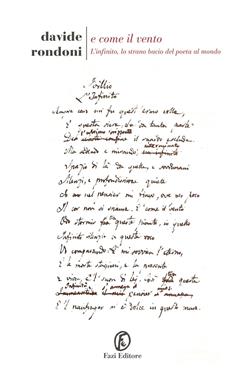 davide rondoni
e come il vento
L'infinito, lo strano bacio del poeta al mondo
Idillio
L'Infinito
Sempre caro mi fu quest'ermo colle,
E questa siepe, che da tanta parte
il guardo esclude.
Ma sedendo e mirando,
Spazio di là da quella, e sovrumani
Silenzi, e profondissima quiete
Io nel pensier mi fingo, ove per poco
Il cor non si spaura. E come il vento
Odo stormir tra queste piante, io quello
Infinito silenzio a questa voce
Vo comparando: e mi sovvien l'eterno,
E le morte stagioni, e la presente
E viva, e 'l suon di lei. Così tra questa
E 'l naufragar m'è dolce in questo mare.
Fazi Editore